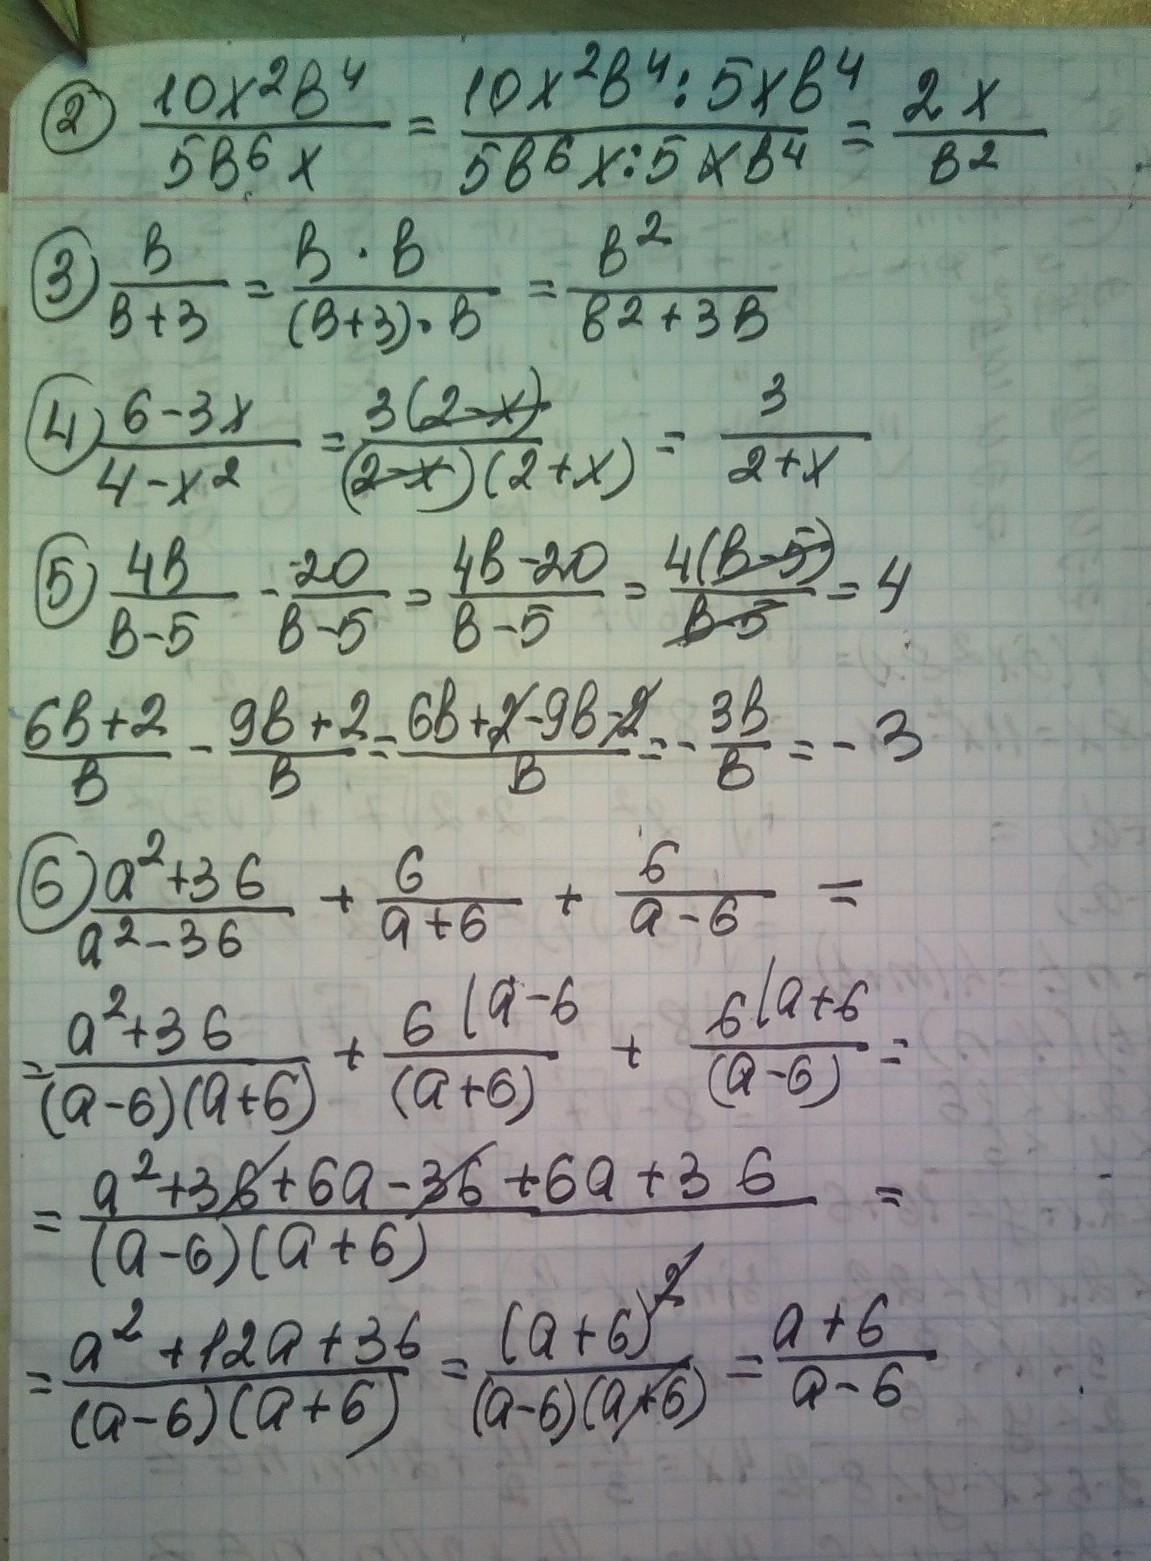 ② 10x²в⁴/5в⁶x = 10x²в⁴:5xв⁴/5в⁶x:5xв⁴ = 2x/в²
③ в/в+3 = в·в/(в+3)·в = в²/в2+3в
④ 6-3x/4-x² = 3(2-x)/(2-x)(2+x) = 3/2+x
⑤ 4в/в-5 - 20/в-5 = 4в-20/в-5 = 4(в-5)/в-5 = 4
6в+2/в - 9в+2/в = 6в+2-9в-2/в = - 3в/в = - 3
⑥ a²+36/a²-36 + 6/a+6 + 6/a-6 =
= a²+36/(a-6)(a+6) + 6(a-6/(a+6) + 6(a+6/(a-6) =
= a²+36+6a-36+6a+36/(a-6)(a+6) =
= a²+12a+36/(a-6)(a+6) = (a+6)²/(a-6)(a+6) = a+6/a-6